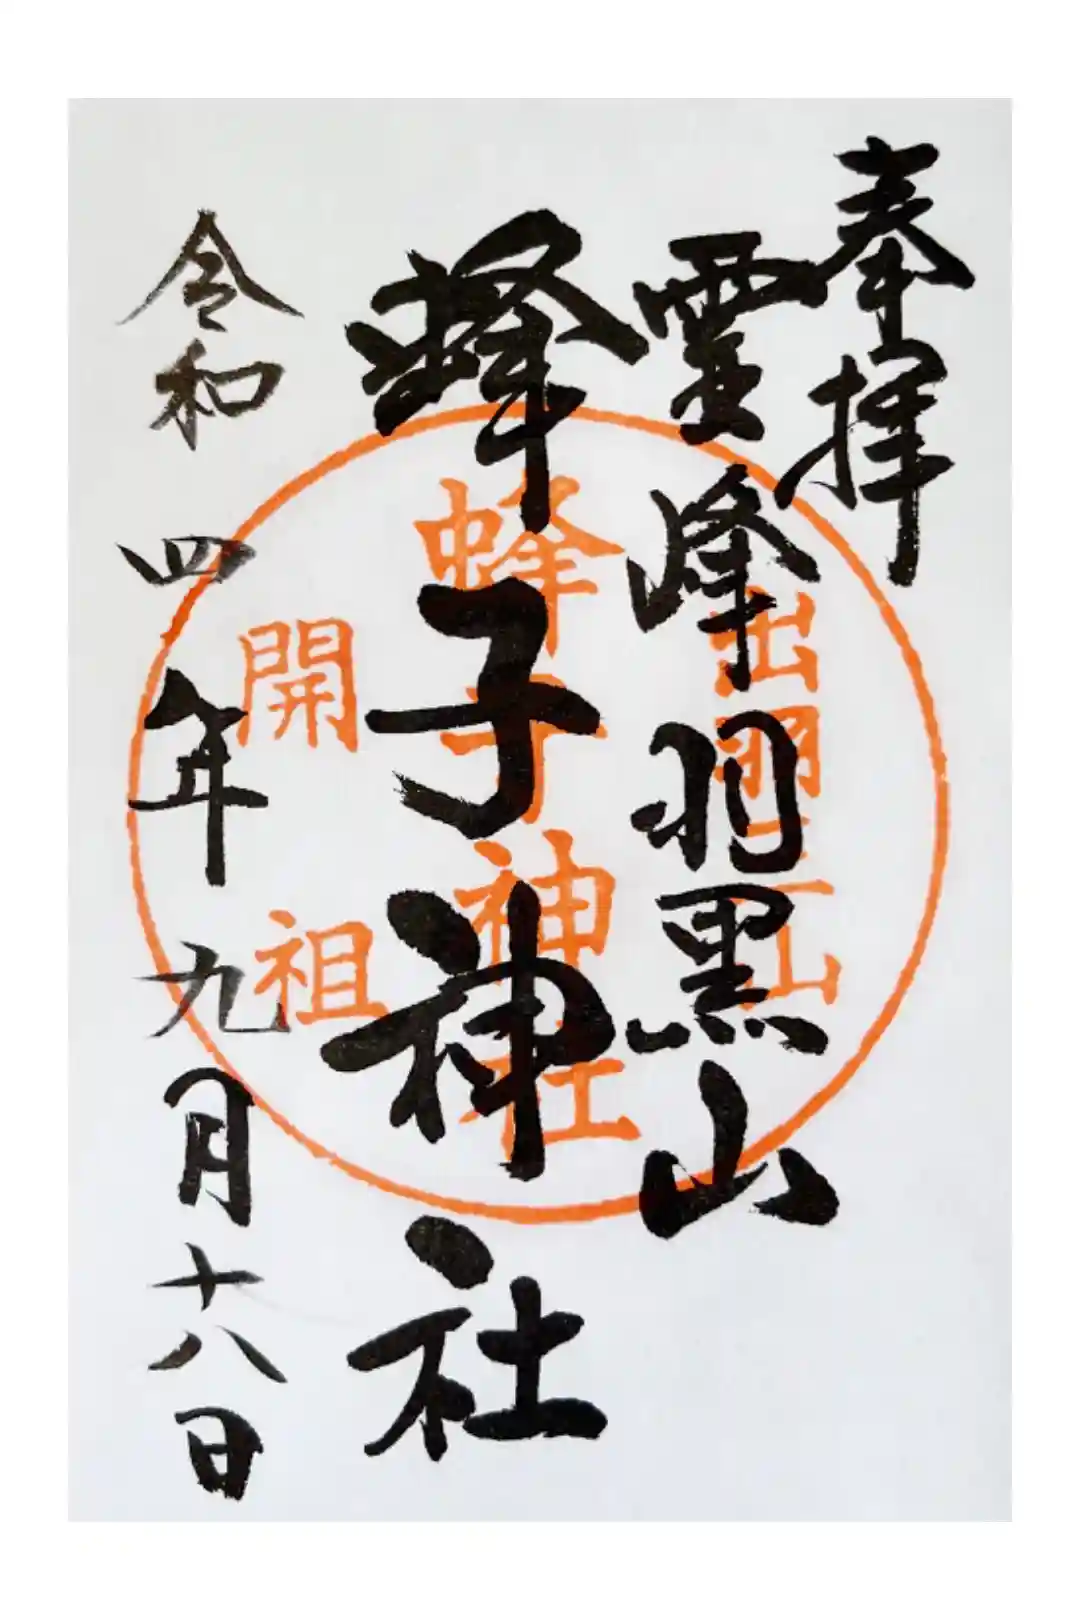 奉拝
霊峰羽黒山
蜂子神社
令和四年九月十八日
出羽三山
蜂子神社
開祖